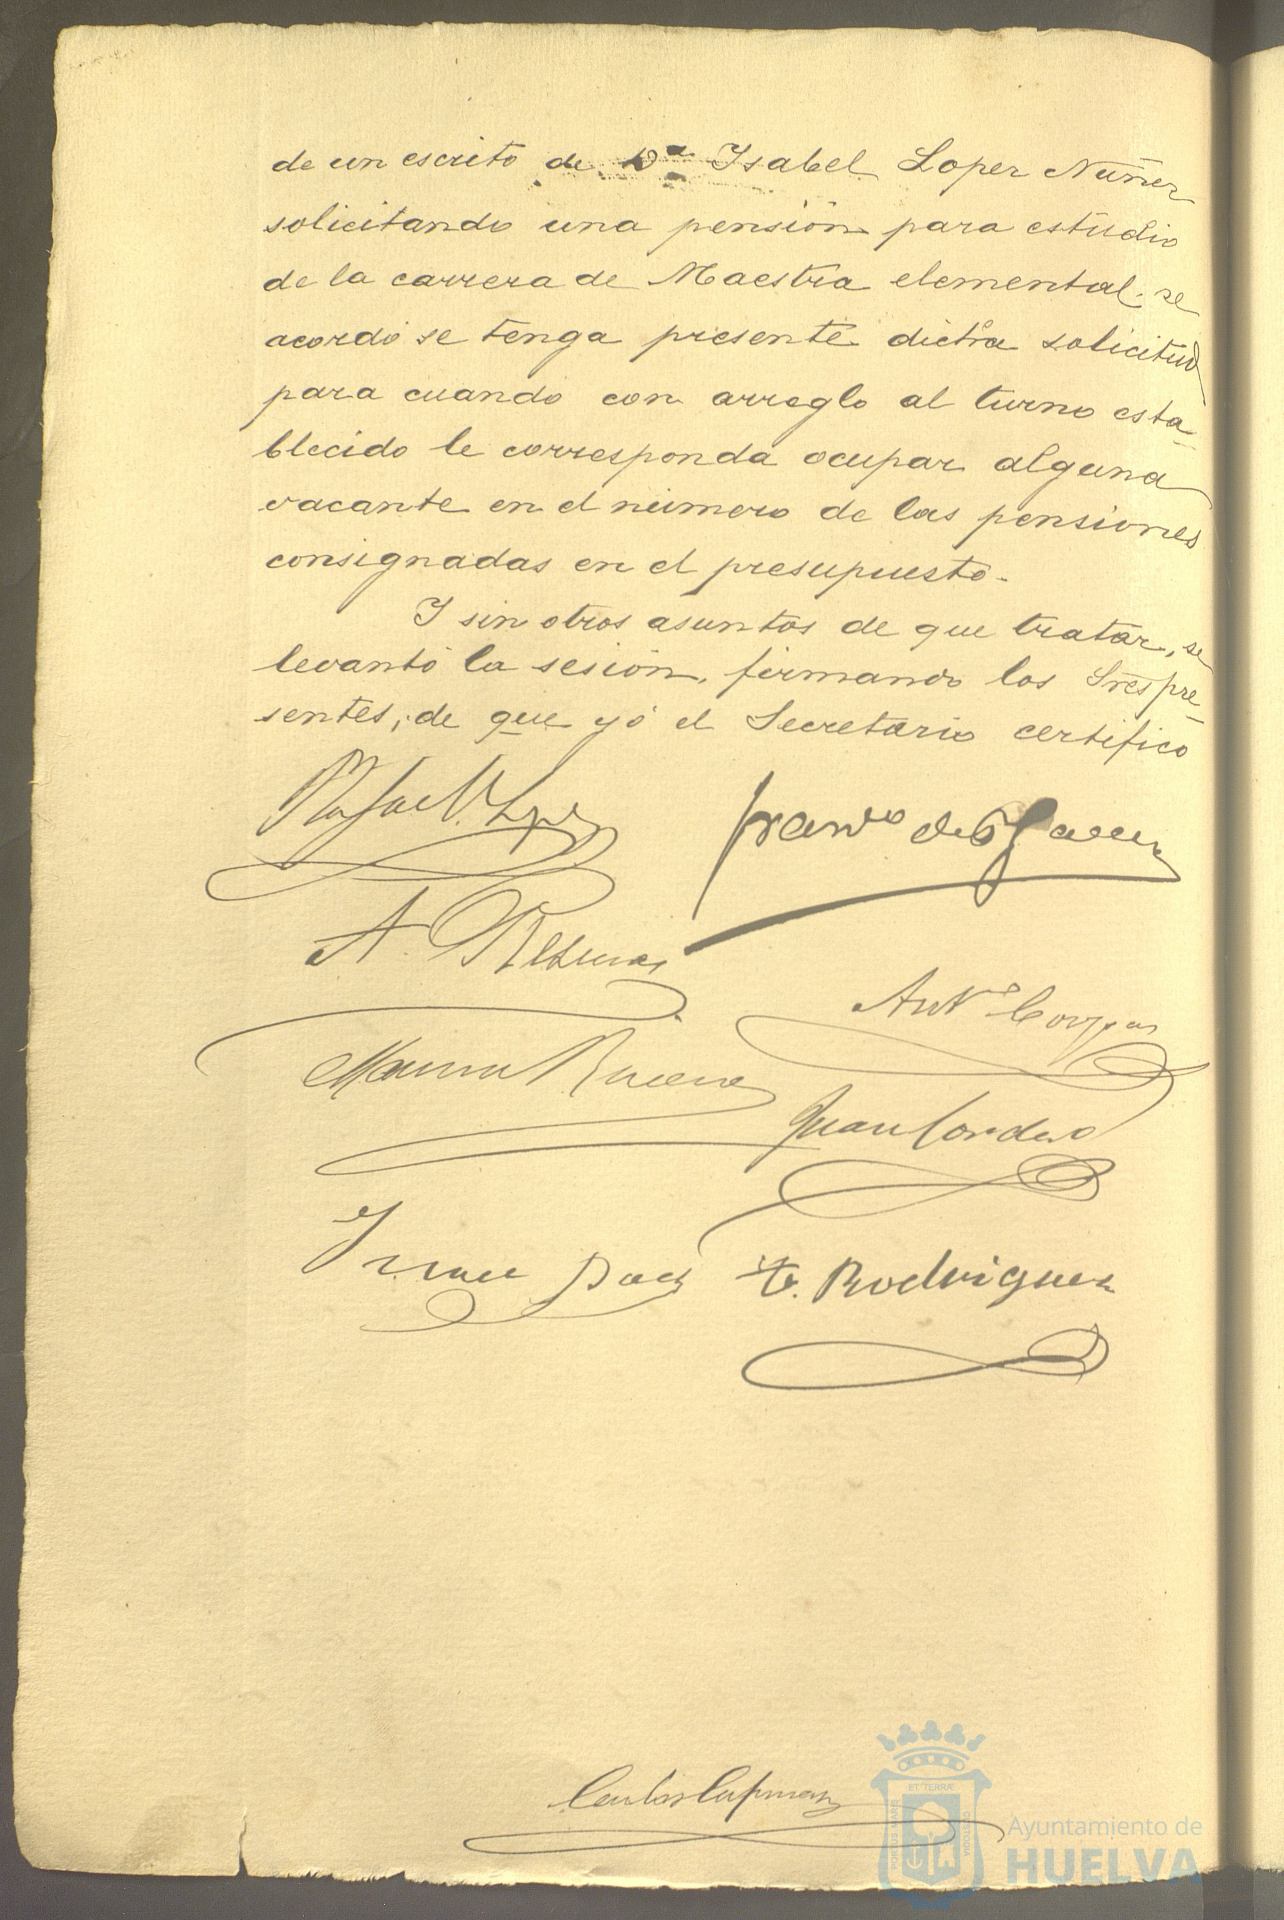 de un escrito de Dª Isabel Lopez Nuñez
solicitando una pensión para estudio
de la carrera de Maestra elemental, se
acordó se tenga presente dicha solicitud
para cuando con arreglo al turno esta-
blecido le corresponda ocupar alguna
vacante en el número de las pensiones
consignadas en el presupuesto.
Y sin otros asuntos de que tratar, se
levantó la sesión, firmando los Sres pre-
sentes, de que yó el Secretario certifico
Rafael
Franco de
A.
Antº
Juan Cordero
Rodriguez
Carlos
ET TERRÆ
PORTUS MARIS
CUSTODIA
Ayuntamiento de
HUELVA